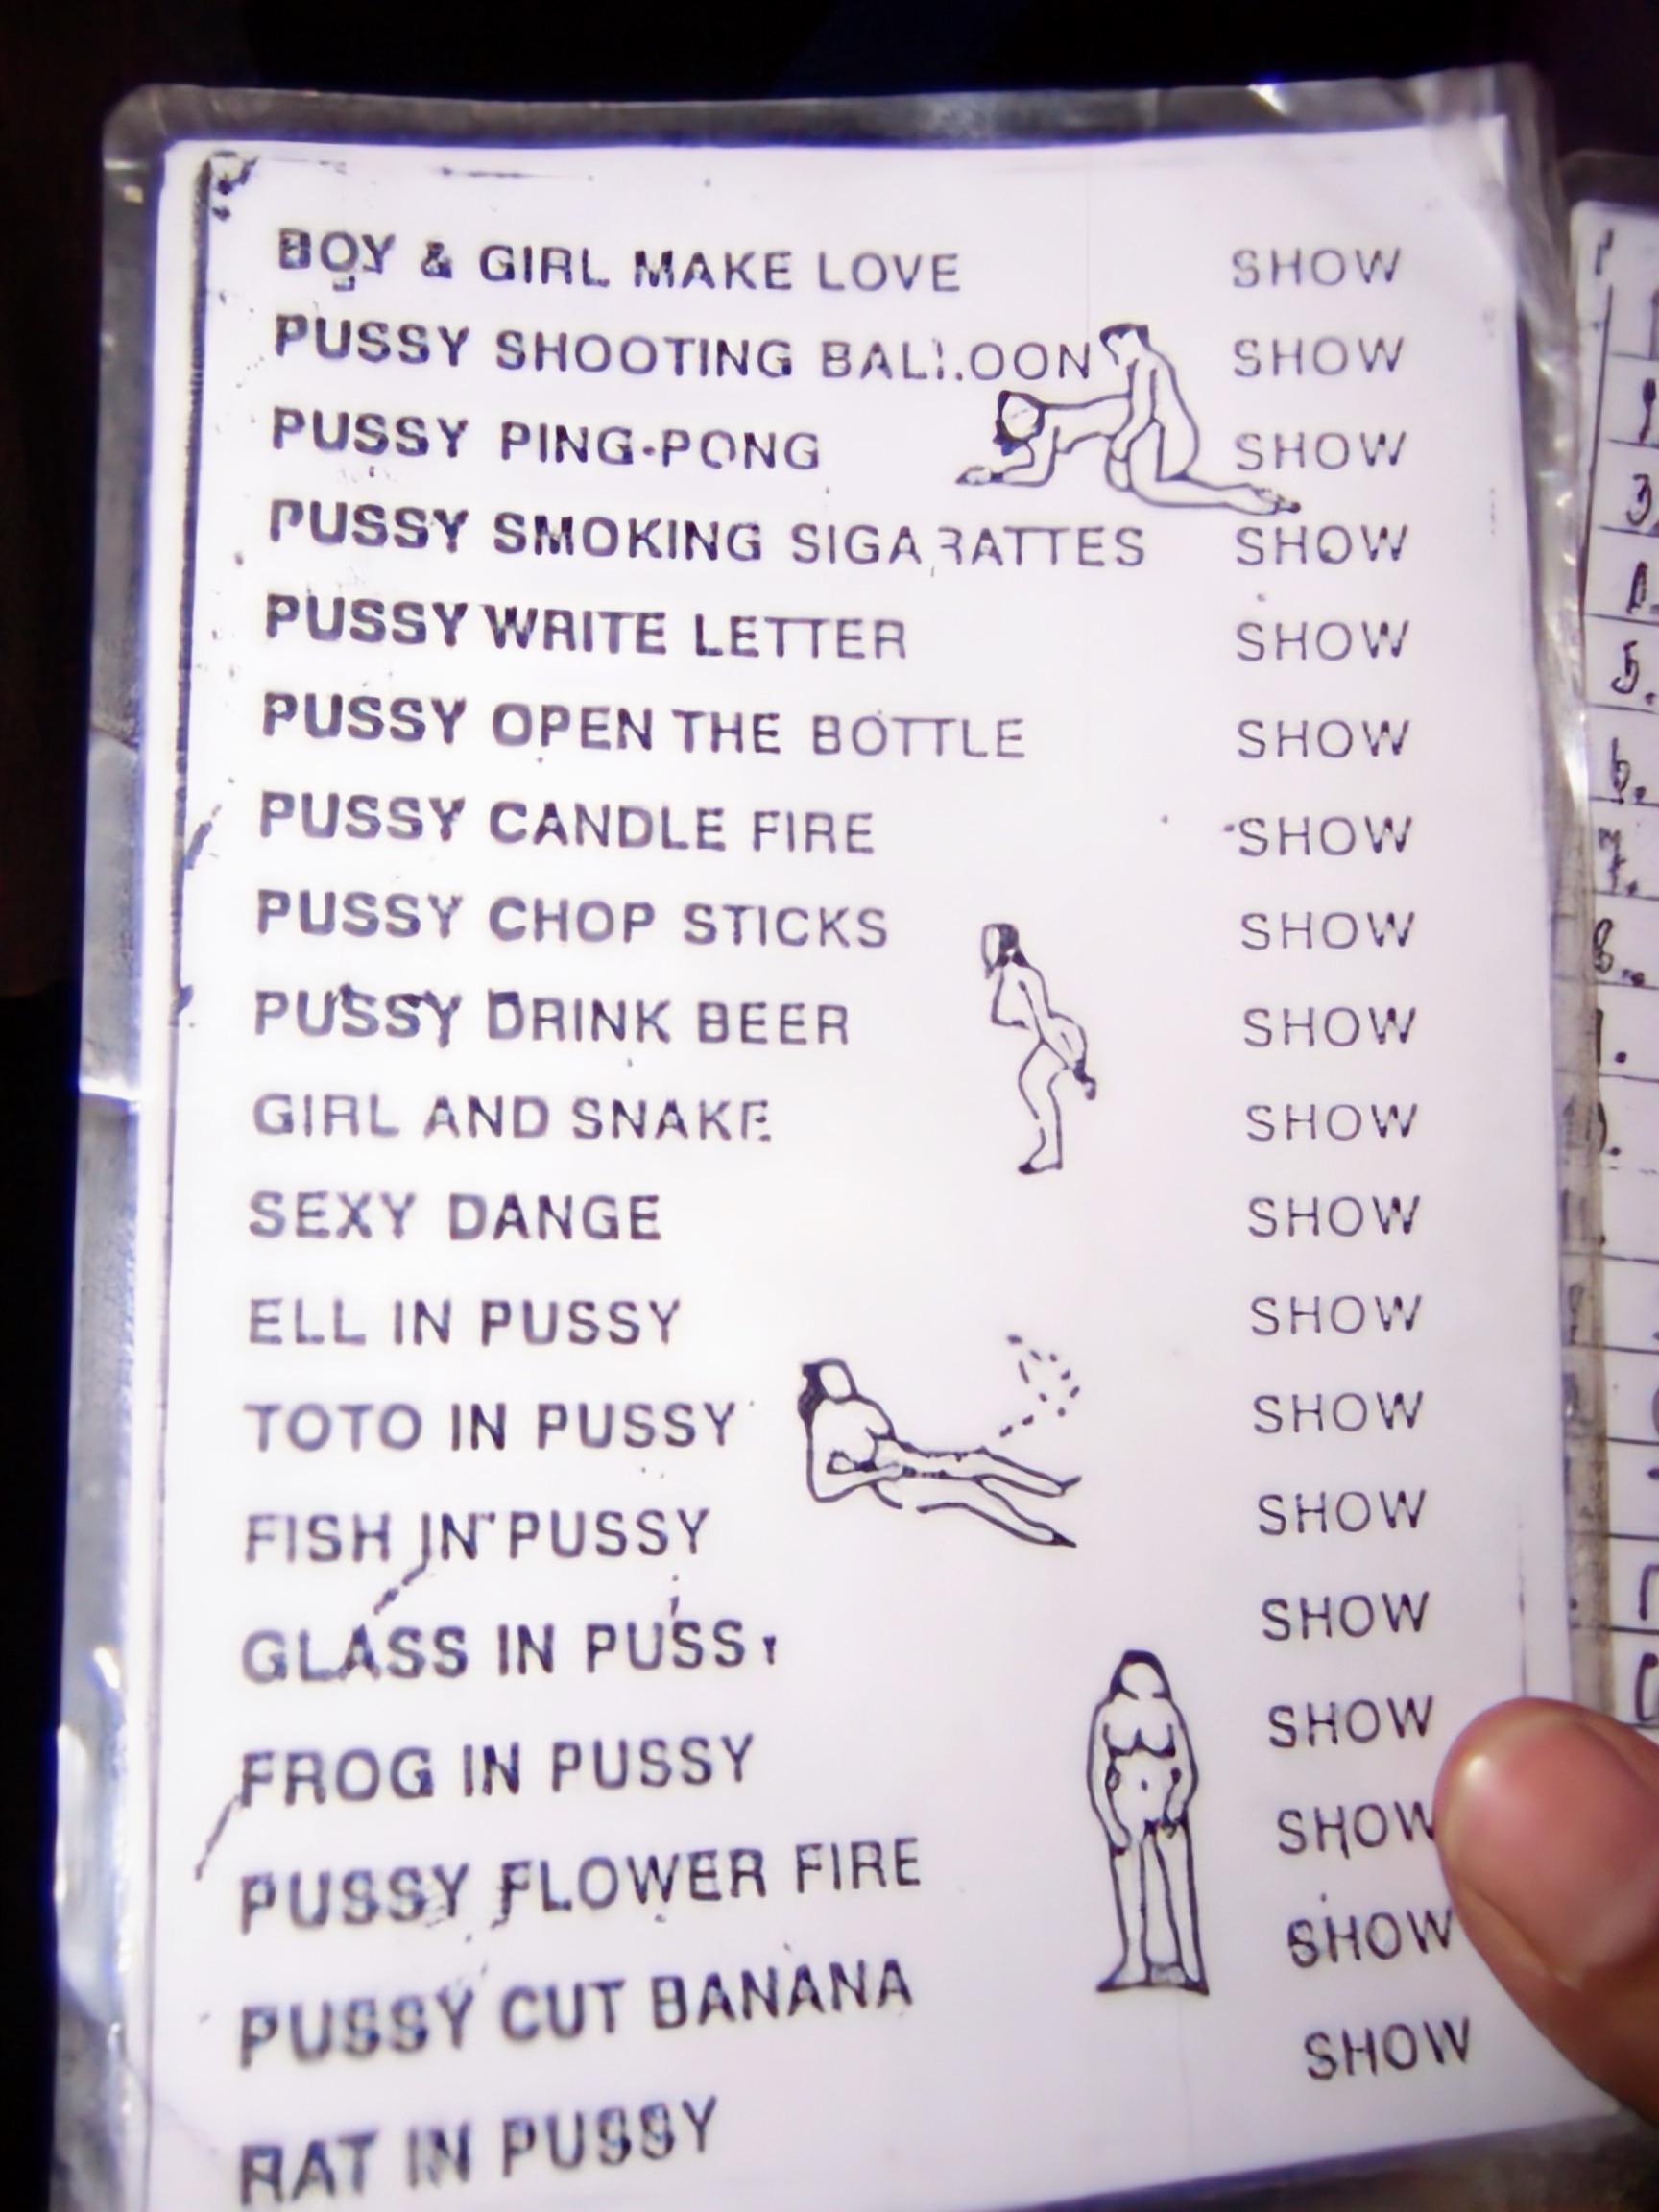 BOY & GIRL MAKE LOVE SHOW
PUSSY SHOOTING BALLOON SHOW
PUSSY PING-PONG SHOW
PUSSY SMOKING SIGARATTES SHOW
PUSSY WRITE LETTER SHOW
PUSSY OPEN THE BOTTLE SHOW
PUSSY CANDLE FIRE SHOW
PUSSY CHOP STICKS SHOW
PUSSY DRINK BEER SHOW
GIRL AND SNAKE SHOW
SEXY DANGE SHOW
ELL IN PUSSY SHOW
TOTO IN PUSSY SHOW
FISH IN PUSSY SHOW
GLASS IN PUSSY SHOW
FROG IN PUSSY SHOW
PUSSY FLOWER FIRE SHOW
PUSSY CUT BANANA SHOW
RAT IN PUSSY SHOW
3
5.
6.
7.
8.